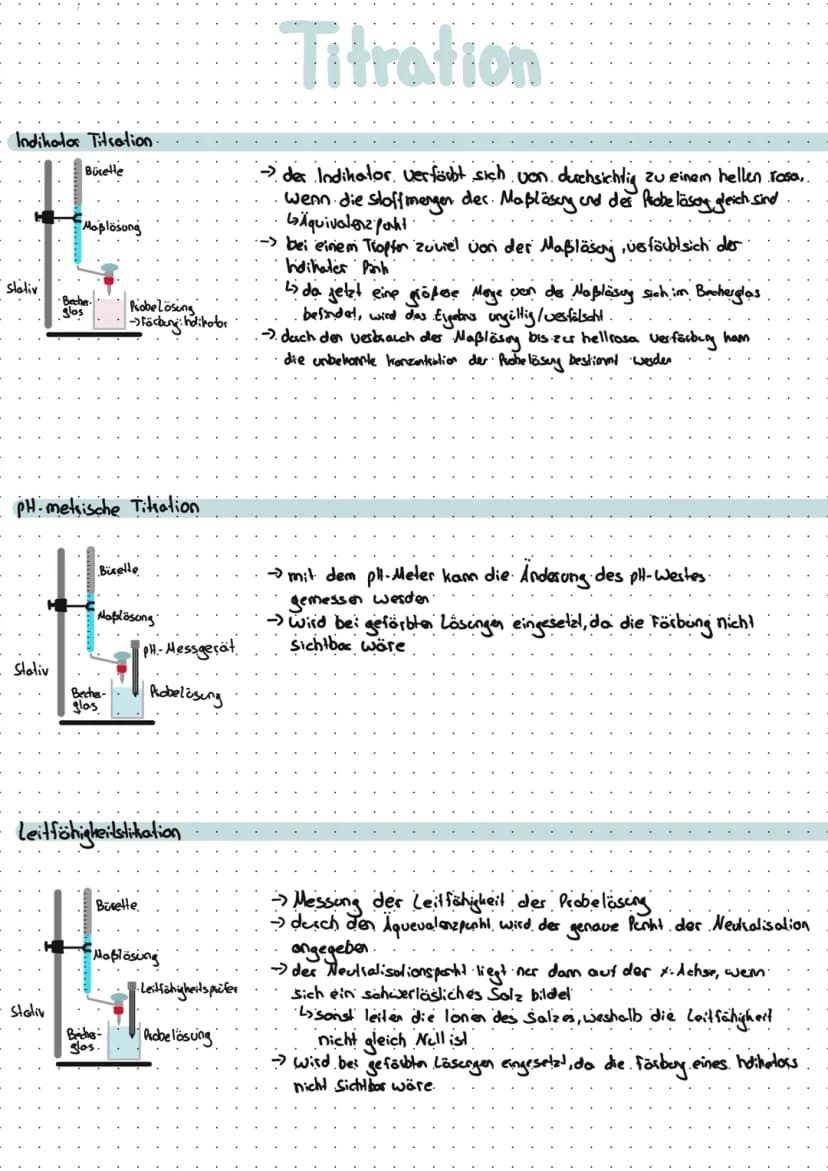 Titration
Indikator Titration
Bürette
Maßlösung
Stativ
Becher-
glas
Probelösung
→ Färbung: Indikator
→ der Indikator verfärbt sich von durchsichtig zu einem hellen rosa,
wenn die stoffmengen der Maßlösung und der Probelösung gleich sind
↳ Äquivalenzpunkt
→ bei einem Tropfen zuviel von der Maßlösung, verfärbt sich der
Indikator Pink
↳ da jetzt eine größere Menge von der Maßlösung sich im Becherglas
befindet, wird das Ergebnis ungültig/verfälscht
→ durch den verbrauch der Maßlösung bis zur hellrosa verfärbung kann
die unbekannte konzentration der Probelösung bestimmt werden
pH-metrische Titration
Bürette
Maßlösung
pH-Messgerät
Stativ
Becher-
glas
Probelösung
→ mit dem pH-Meter kann die Änderung des pH-Wertes
gemessen werden
→ wird bei gefärbten Lösungen eingesetzt, da die Färbung nicht
sichtbar wäre
Leitfähigkeitstitration
Bürette
Maßlösung
Leitfähigkeitsprüfer
Stativ
Becher-
glas
Probelösung
→ Messung der Leitfähigkeit der Probelösung
→ durch den Äquevalenzpunkt wird der genaue Punkt der Neutralisation
angegeben
→ der Neutralisationspunkt liegt nur dann auf der x-Achse, wenn
sich ein schwerlösliches Salz bildet
↳ sonst leiten die Ionen des Salzes, weshalb die Leitfähigkeit
nicht gleich Null ist
→ wird bei gefärbten Lösungen eingesetzt, da die Färbung eines Indikators
nicht sichtbar wäre